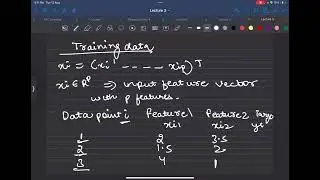 Lecture 2
Training data
xi = (xi1 - - - - - xip)T
xi ∈ R^p ⇒ input feature vector
with p features.
Data point i Feature1 Feature2
xi1 xi2 yi
1 2 3.5
2 1.5 2
3 4 1